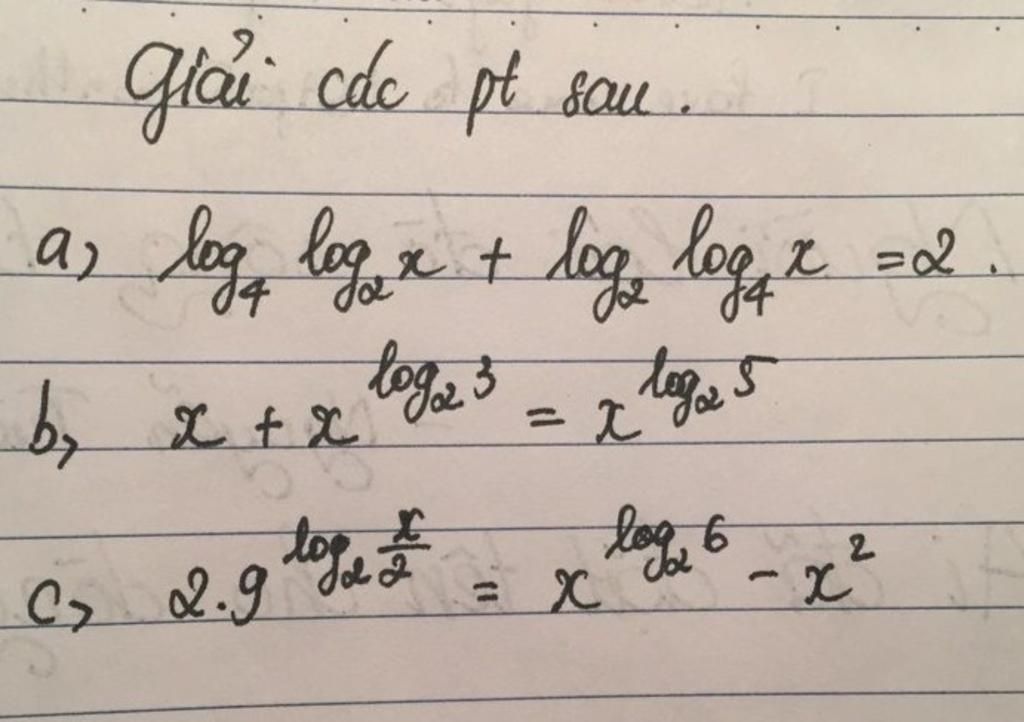 Giải các pt sau.
a, log₄ log₂ x + log₂ log₄ x = 2.
b, x + x^(log₂ 3) = x^(log₂ 5)
c, 2.9^(log₂ x/2) = x^(log₂ 6) - x²